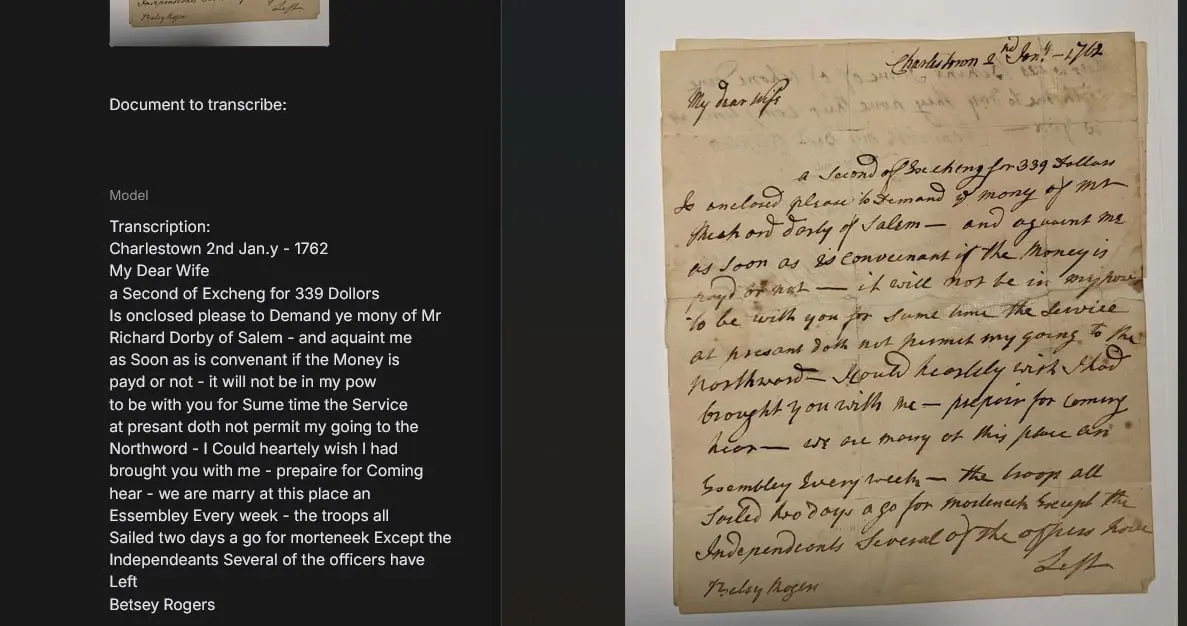 Independents Several of the officers have
Left
Betsey Rogers
Document to transcribe:
Model
Transcription:
Charlestown 2nd Jan.y - 1762
My Dear Wife
a Second of Excheng for 339 Dollors
Is onclosed please to Demand ye mony of Mr
Richard Dorby of Salem - and aquaint me
as Soon as is convenant if the Money is
payd or not - it will not be in my pow
to be with you for Sume time the Service
at presant doth not permit my going to the
Northword - I Could heartely wish I had
brought you with me - prepaire for Coming
hear - we are marry at this place an
Essembley Every week - the troops all
Sailed two days a go for morteneek Except the
Independeants Several of the officers have
Left
Betsey Rogers
Charlestown 2nd Jany - 1762
My dear wife
a Second of Excheng for 339 Dollars
Is enclosed please to Demand ye mony of Mr
Richard darby of Salem - and aquaint me
as Soon as is Conveenant if the Money is
payd or not - it will not be in my pow
to be with you for Sume time the Service
at presant doth not permit my going to the
Northward - I Could heartely wish I had
brought you with me - prepair for Coming
hear - we are marry at this place an
Essembley Every week - the troops all
Sailed two days a go for morteneek Except the
Independeants Several of the offisers have
Left
Betsy Rogers